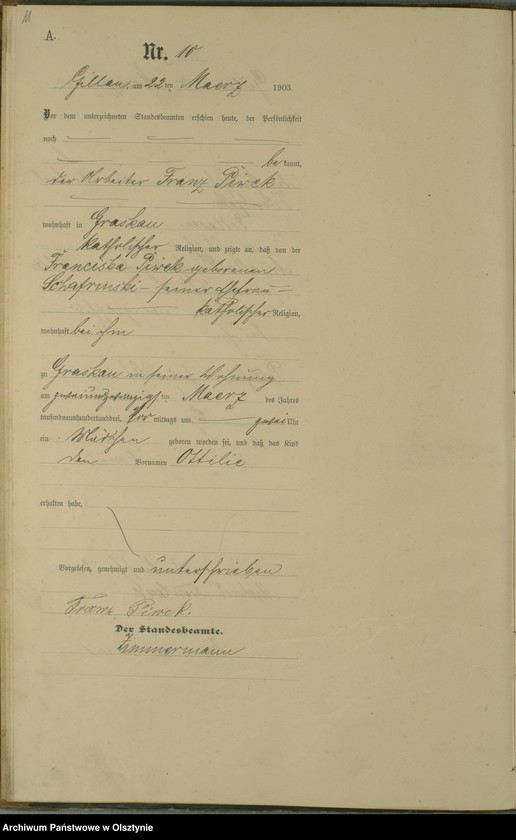 11
A.
Nr. 10
Gillau, am 22 ten Maerz 1903.
Vor dem unterzeichneten Standesbeamten erschien heute, der Persönlichkeit
nach
be kannt,
der Arbeiter Franz Pirck
wohnhaft in Graskau
katholischer Religion, und zeigte an, daß von der
Franciska Pirck geborenen
Schafrinski - seiner Ehefrau -
katholischer Religion,
wohnhaft bei ihm
zu Graskau in seiner Wohnung
am zweiundzwanzigsten Maerz des Jahres
tausendneunhundertunddrei, vor mittags um zwei Uhr
ein Mädchen geboren worden sei, und daß das Kind
den Vornamen Ottilie
erhalten habe,
Vorgelesen, genehmigt und unterschrieben
Franz Pirck.
Der Standesbeamte.
Zimmermann
Archiwum Państwowe w Olsztynie